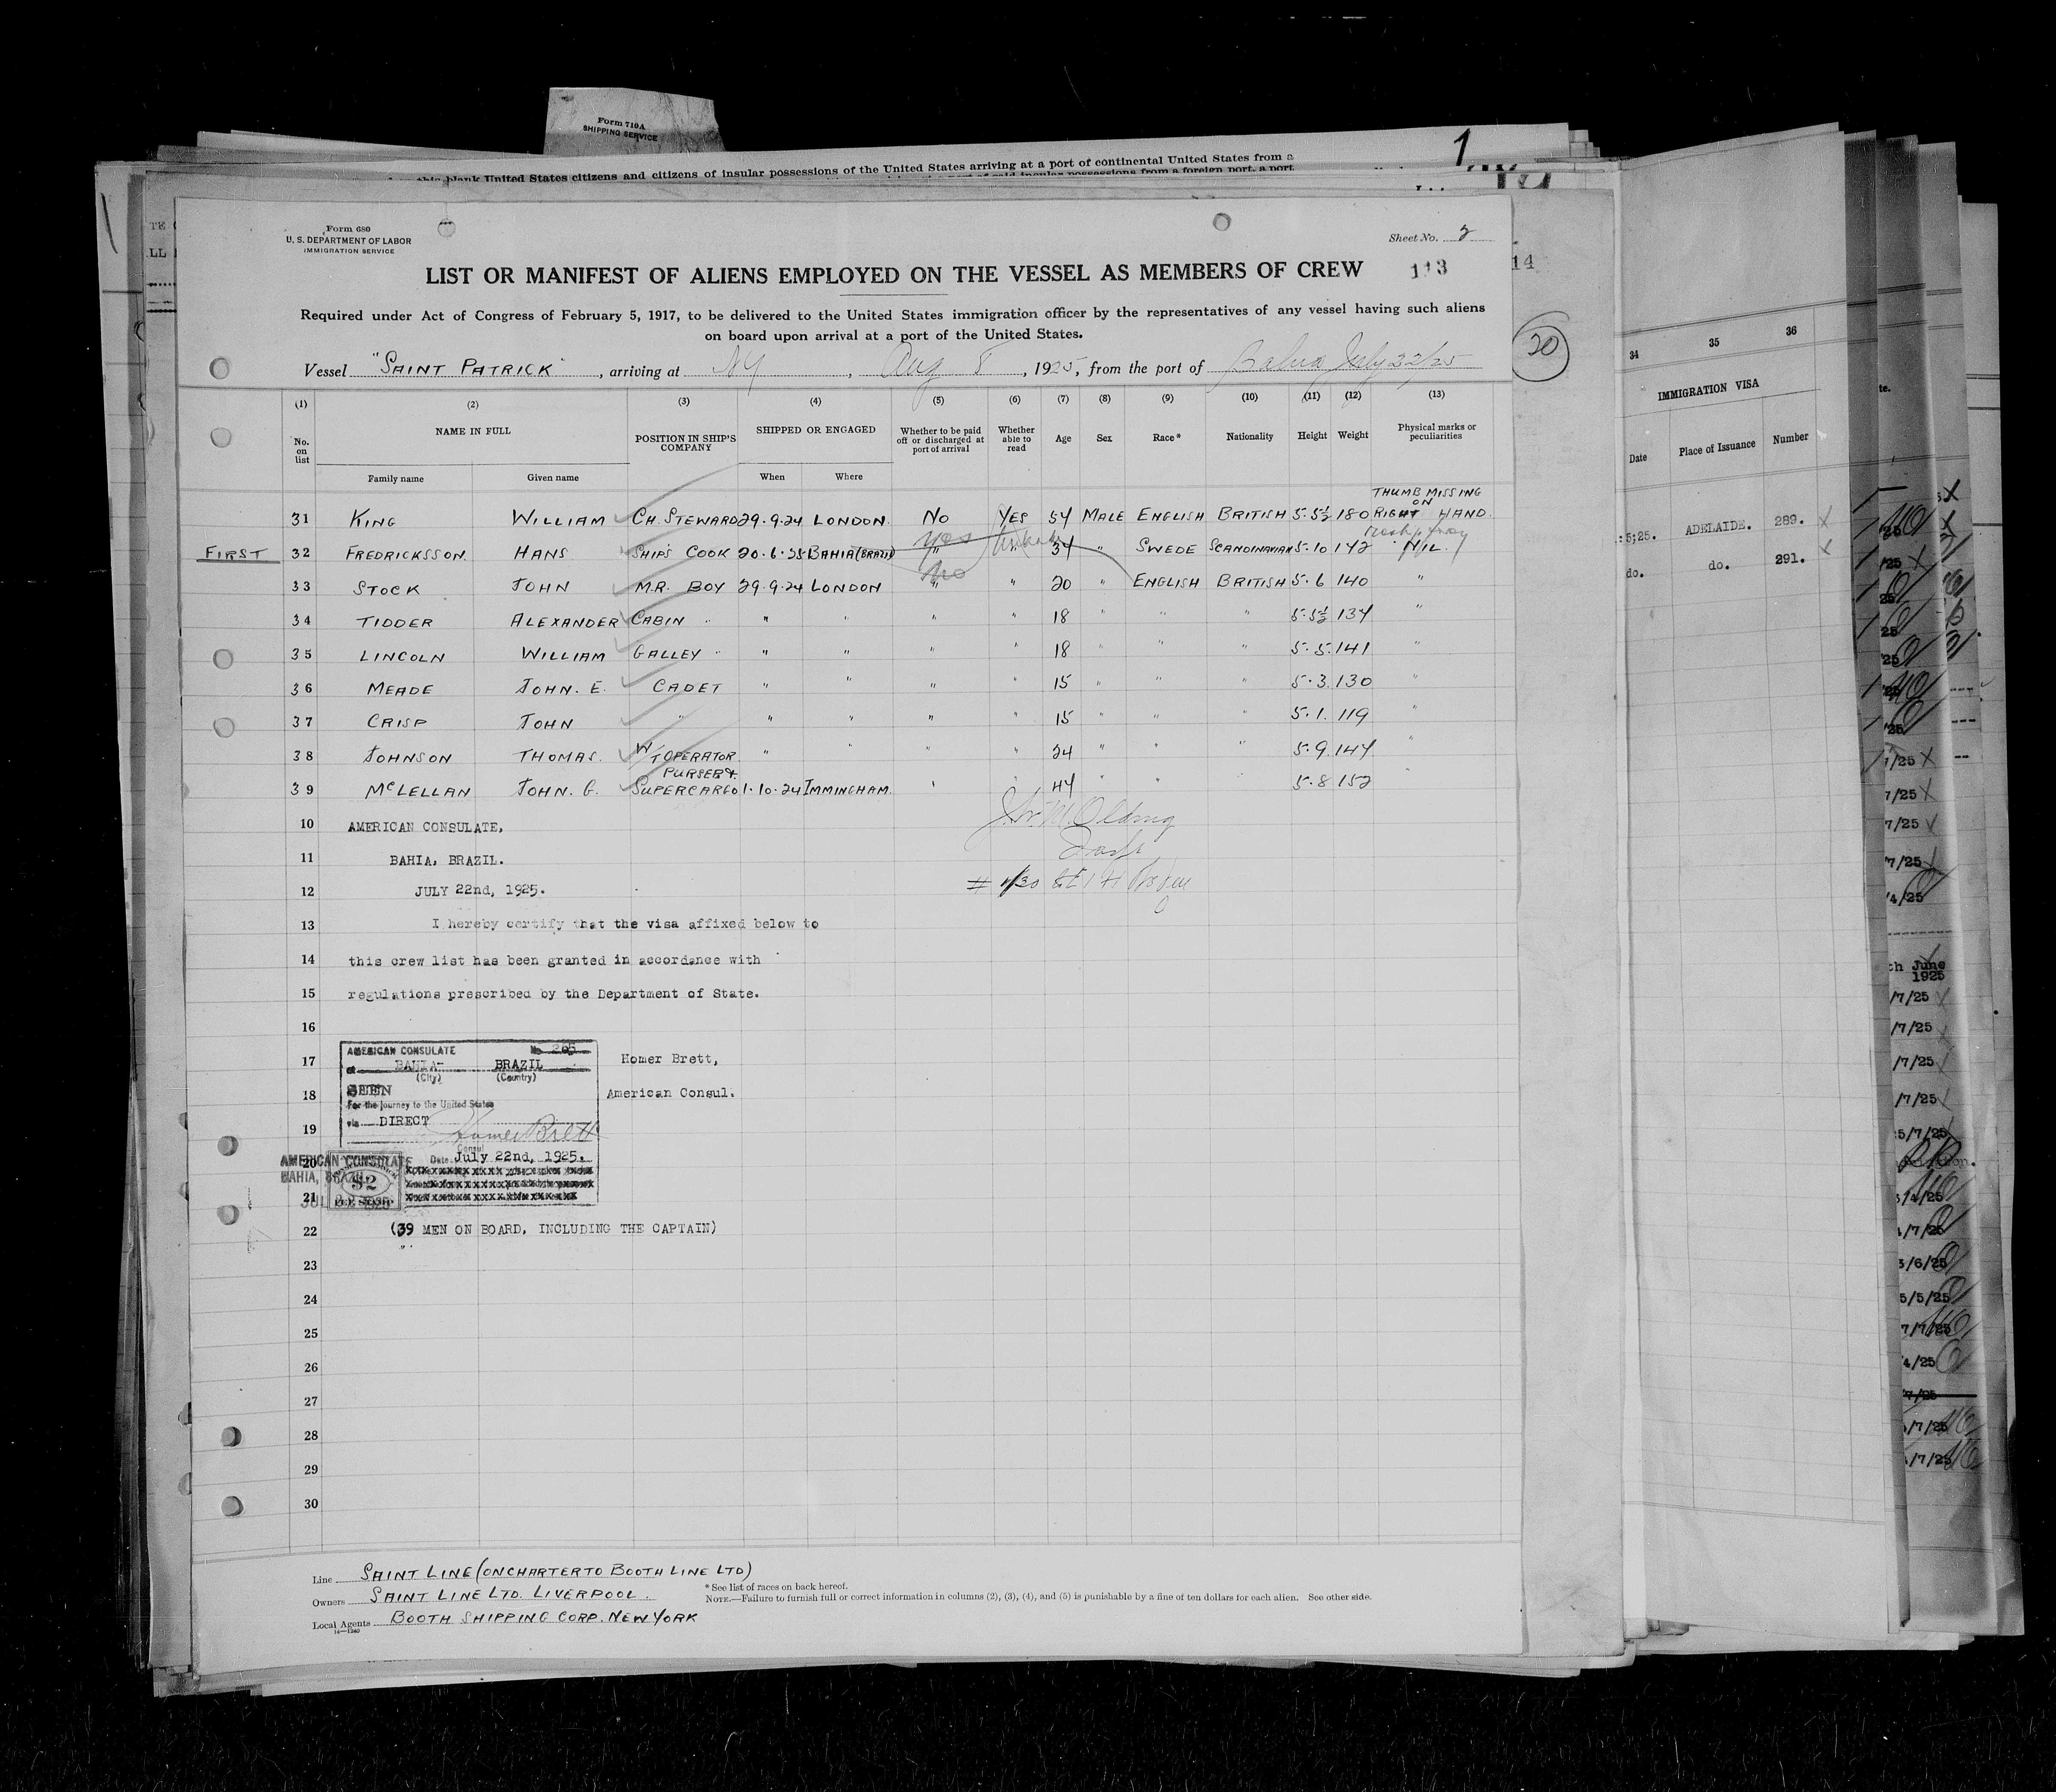 Form 710A
SHIPPING SERVICE
this blank United States citizens and citizens of insular possessions of the United States arriving at a port of continental United States from a
1
Form 680
U. S. DEPARTMENT OF LABOR
IMMIGRATION SERVICE
Sheet No. 2
LIST OR MANIFEST OF ALIENS EMPLOYED ON THE VESSEL AS MEMBERS OF CREW
113
14
Required under Act of Congress of February 5, 1917, to be delivered to the United States immigration officer by the representatives of any vessel having such aliens
on board upon arrival at a port of the United States.
Vessel "SAINT PATRICK", arriving at NY, Aug 8, 1925, from the port of Bahia July 22/25
20
(1) (2) (3) (4) (5) (6) (7) (8) (9) (10) (11) (12) (13)
No. on list NAME IN FULL POSITION IN SHIP'S COMPANY SHIPPED OR ENGAGED Whether to be paid off or discharged at port of arrival Whether able to read Age Sex Race* Nationality Height Weight Physical marks or peculiarities
Family name Given name When Where
THUMB MISSING
ON
31 KING WILLIAM CH. STEWARD 29.9.24 LONDON. No YES 54 MALE ENGLISH BRITISH 5.5½ 180 RIGHT HAND.
Yes
FIRST 32 FREDRICKSSON. HANS SHIPS COOK 20.6.25 BAHIA (BRAZIL) " " 34 " SWEDE SCANDINAVIAN 5.10 142 NIL.
No
33 STOCK JOHN M.R. BOY 29.9.24 LONDON " " 20 " ENGLISH BRITISH 5.6 140 "
34 TIDDER ALEXANDER CABIN " " " " " 18 " " " 5.5½ 134 "
35 LINCOLN WILLIAM GALLEY " " " " " 18 " " " 5.5. 141 "
36 MEADE JOHN. E. CADET " " " " 15 " " " 5.3. 130 "
37 CRISP JOHN " " " " " 15 " " " 5.1. 119 "
38 JOHNSON THOMAS. W/T OPERATOR. " " " " 24 " " " 5.9. 147 "
PURSER &
39 McLELLAN JOHN. G. SUPERCARGO 1.10.24 IMMINGHAM. " " 44 " " " 5.8 152 "
10 AMERICAN CONSULATE,
11 BAHIA, BRAZIL.
12 JULY 22nd, 1925.
13 I hereby certify that the visa affixed below to
14 this crew list has been granted in accordance with
15 regulations prescribed by the Department of State.
16
AMERICAN CONSULATE No 265
17 at BAHIA- BRAZIL Homer Brett,
(City) (Country)
18 SEEN American Consul.
For the journey to the United States
via DIRECT
19 Homer Brett
Consul
20 AMERICAN CONSULATE Date July 22nd, 1925.
BAHIA, BRAZIL
$2
21 JUL 22 1925
22 (39 MEN ON BOARD, INCLUDING THE CAPTAIN)
23
24
25
26
27
28
29
30
Line SAINT LINE (ON CHARTER TO BOOTH LINE LTD)
Owners SAINT LINE LTD. LIVERPOOL.
Local Agents BOOTH SHIPPING CORP. NEW YORK
14—1240
* See list of races on back hereof.
NOTE.—Failure to furnish full or correct information in columns (2), (3), (4), and (5) is punishable by a fine of ten dollars for each alien. See other side.
34 35 36
IMMIGRATION VISA
Date Place of Issuance Number
:5;25. ADELAIDE. 289.
do. do. 291.